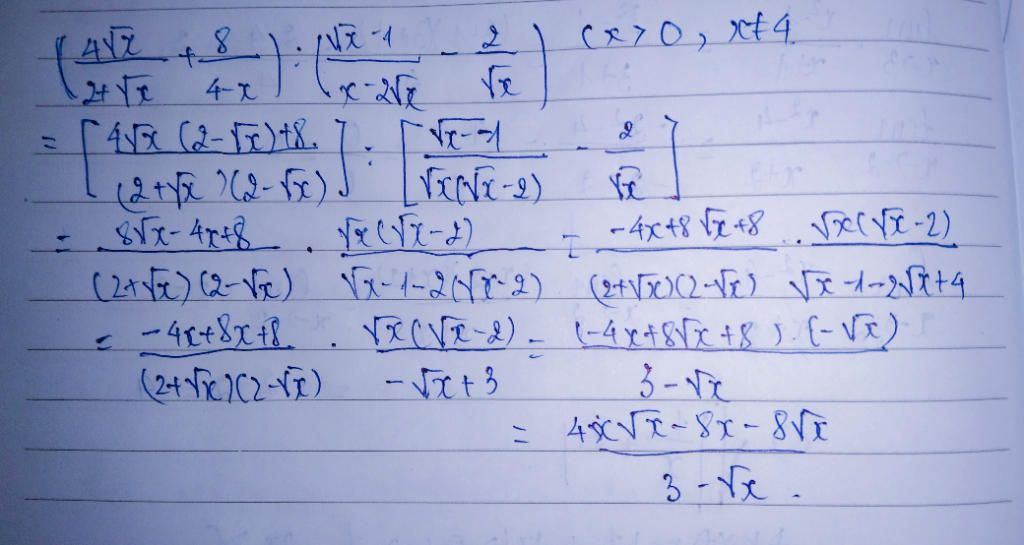 (4√x/(2+√x) + 8/(4-x)) : ((√x-1)/(x-2√x) - 2/√x) (x>0, x≠4
= [(4√x(2-√x)+8)/((2+√x)(2-√x))] : [(√x-1)/(√x(√x-2)) - 2/√x]
= (8√x-4x+8)/((2+√x)(2-√x)) . (√x(√x-2))/(√x-1-2(√x-2)) = (-4x+8√x+8)/((2+√x)(2-√x)) . (√x(√x-2))/(√x-1-2√x+4)
= (-4x+8x+8)/((2+√x)(2-√x)) . (√x(√x-2))/(-√x+3) = ((-4x+8√x+8).(-√x))/(3-√x)
= (4x√x-8x-8√x)/(3-√x).